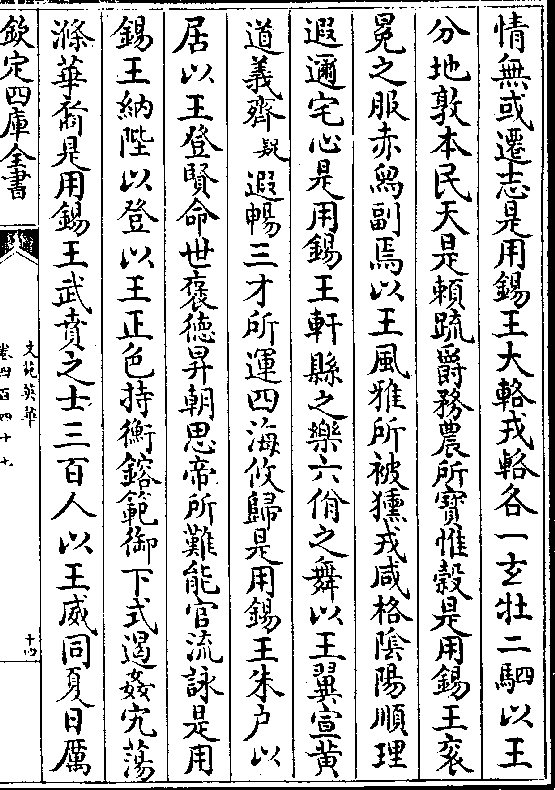 情無或遷志是用錫王大輅戎輅各一玄牡二駟以王
分地敦本民天是賴疏爵務農所寳惟穀是用錫王衮
冕之服赤舄副焉以王風雅所被獯戎咸格隂陽順理
遐邇宅心是用錫王軒縣之樂六佾之舞以王翼宣黄
道義齊疑遐暢三才所運四海攸歸是用錫王朱户以
居以王登賢命世褒徳昇朝思帝所難能官流詠是用
錫王納陛以登以王正色持衡鎔範御下式遏姦宄蕩
滌華裔是用錫王武賁之士三百人以王威同夏日厲
欽定四庫全書
文苑英華
卷四百四十七
十四